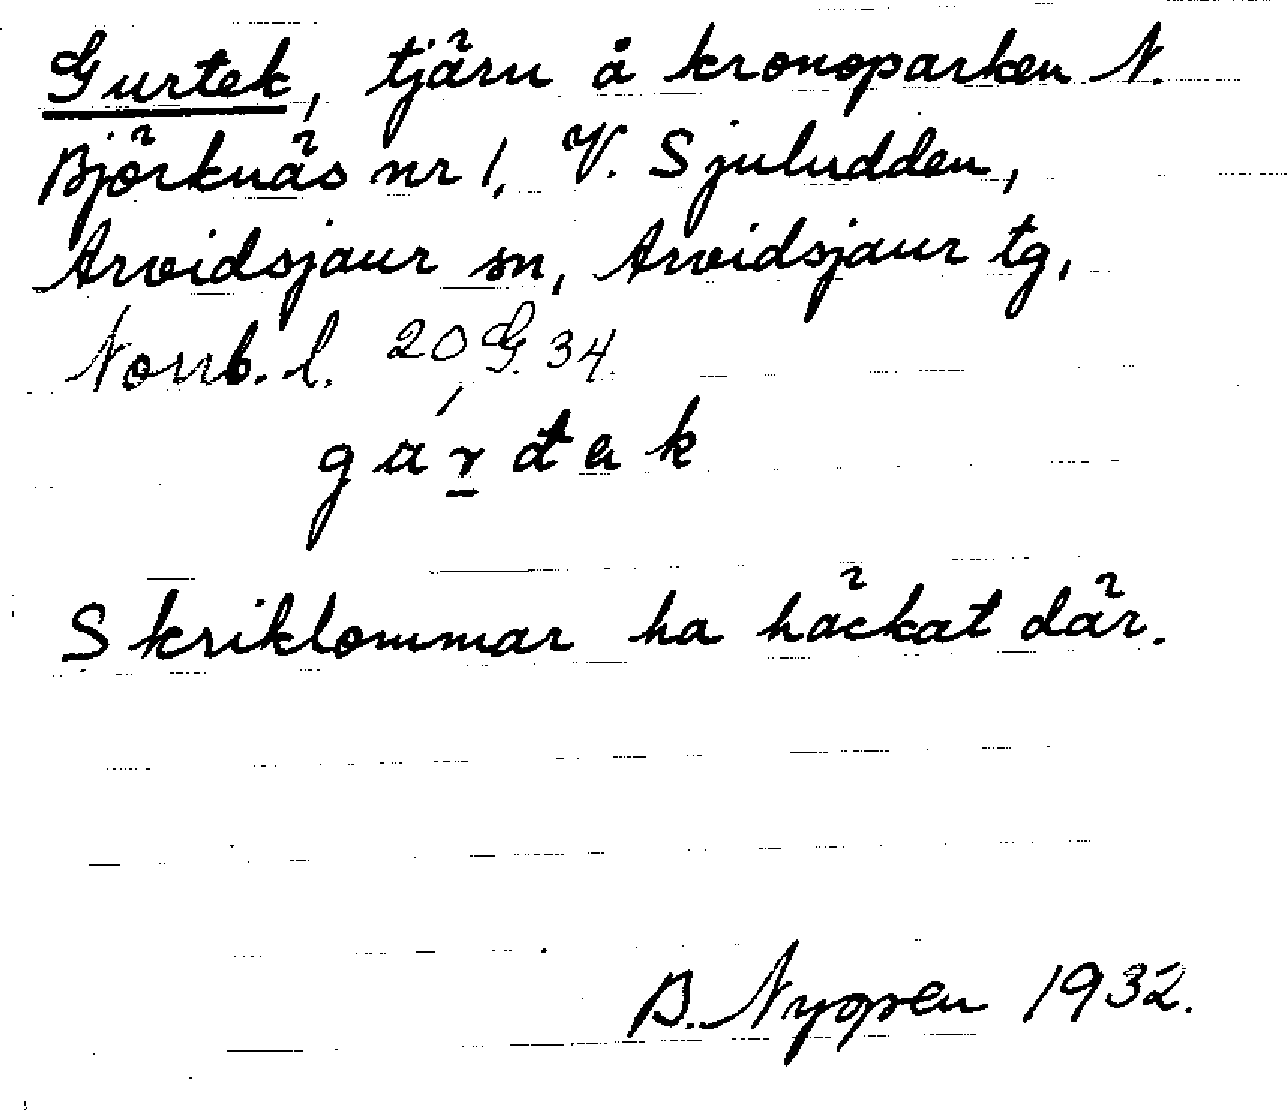 Gurtek, tjärn å kronoparken N.
Björknäs nr 1, V. Sjuludden,
Arvidsjaur sn, Arvidsjaur tg,
Norrb. l. 20 G. 34.
Skriklommar ha häckat där.
B. Nygren 1932.